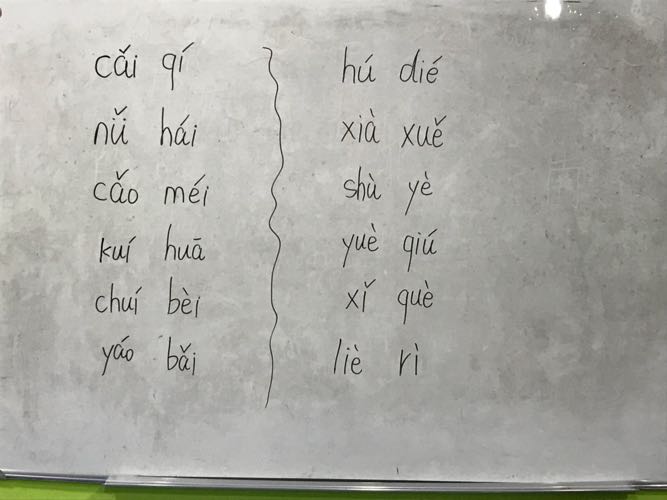 cǎi qí
nǚ hái
cǎo méi
kuí huā
chuí bèi
yáo bǎi
hú dié
xià xuě
shù yè
yuè qiú
xǐ què
liè rì